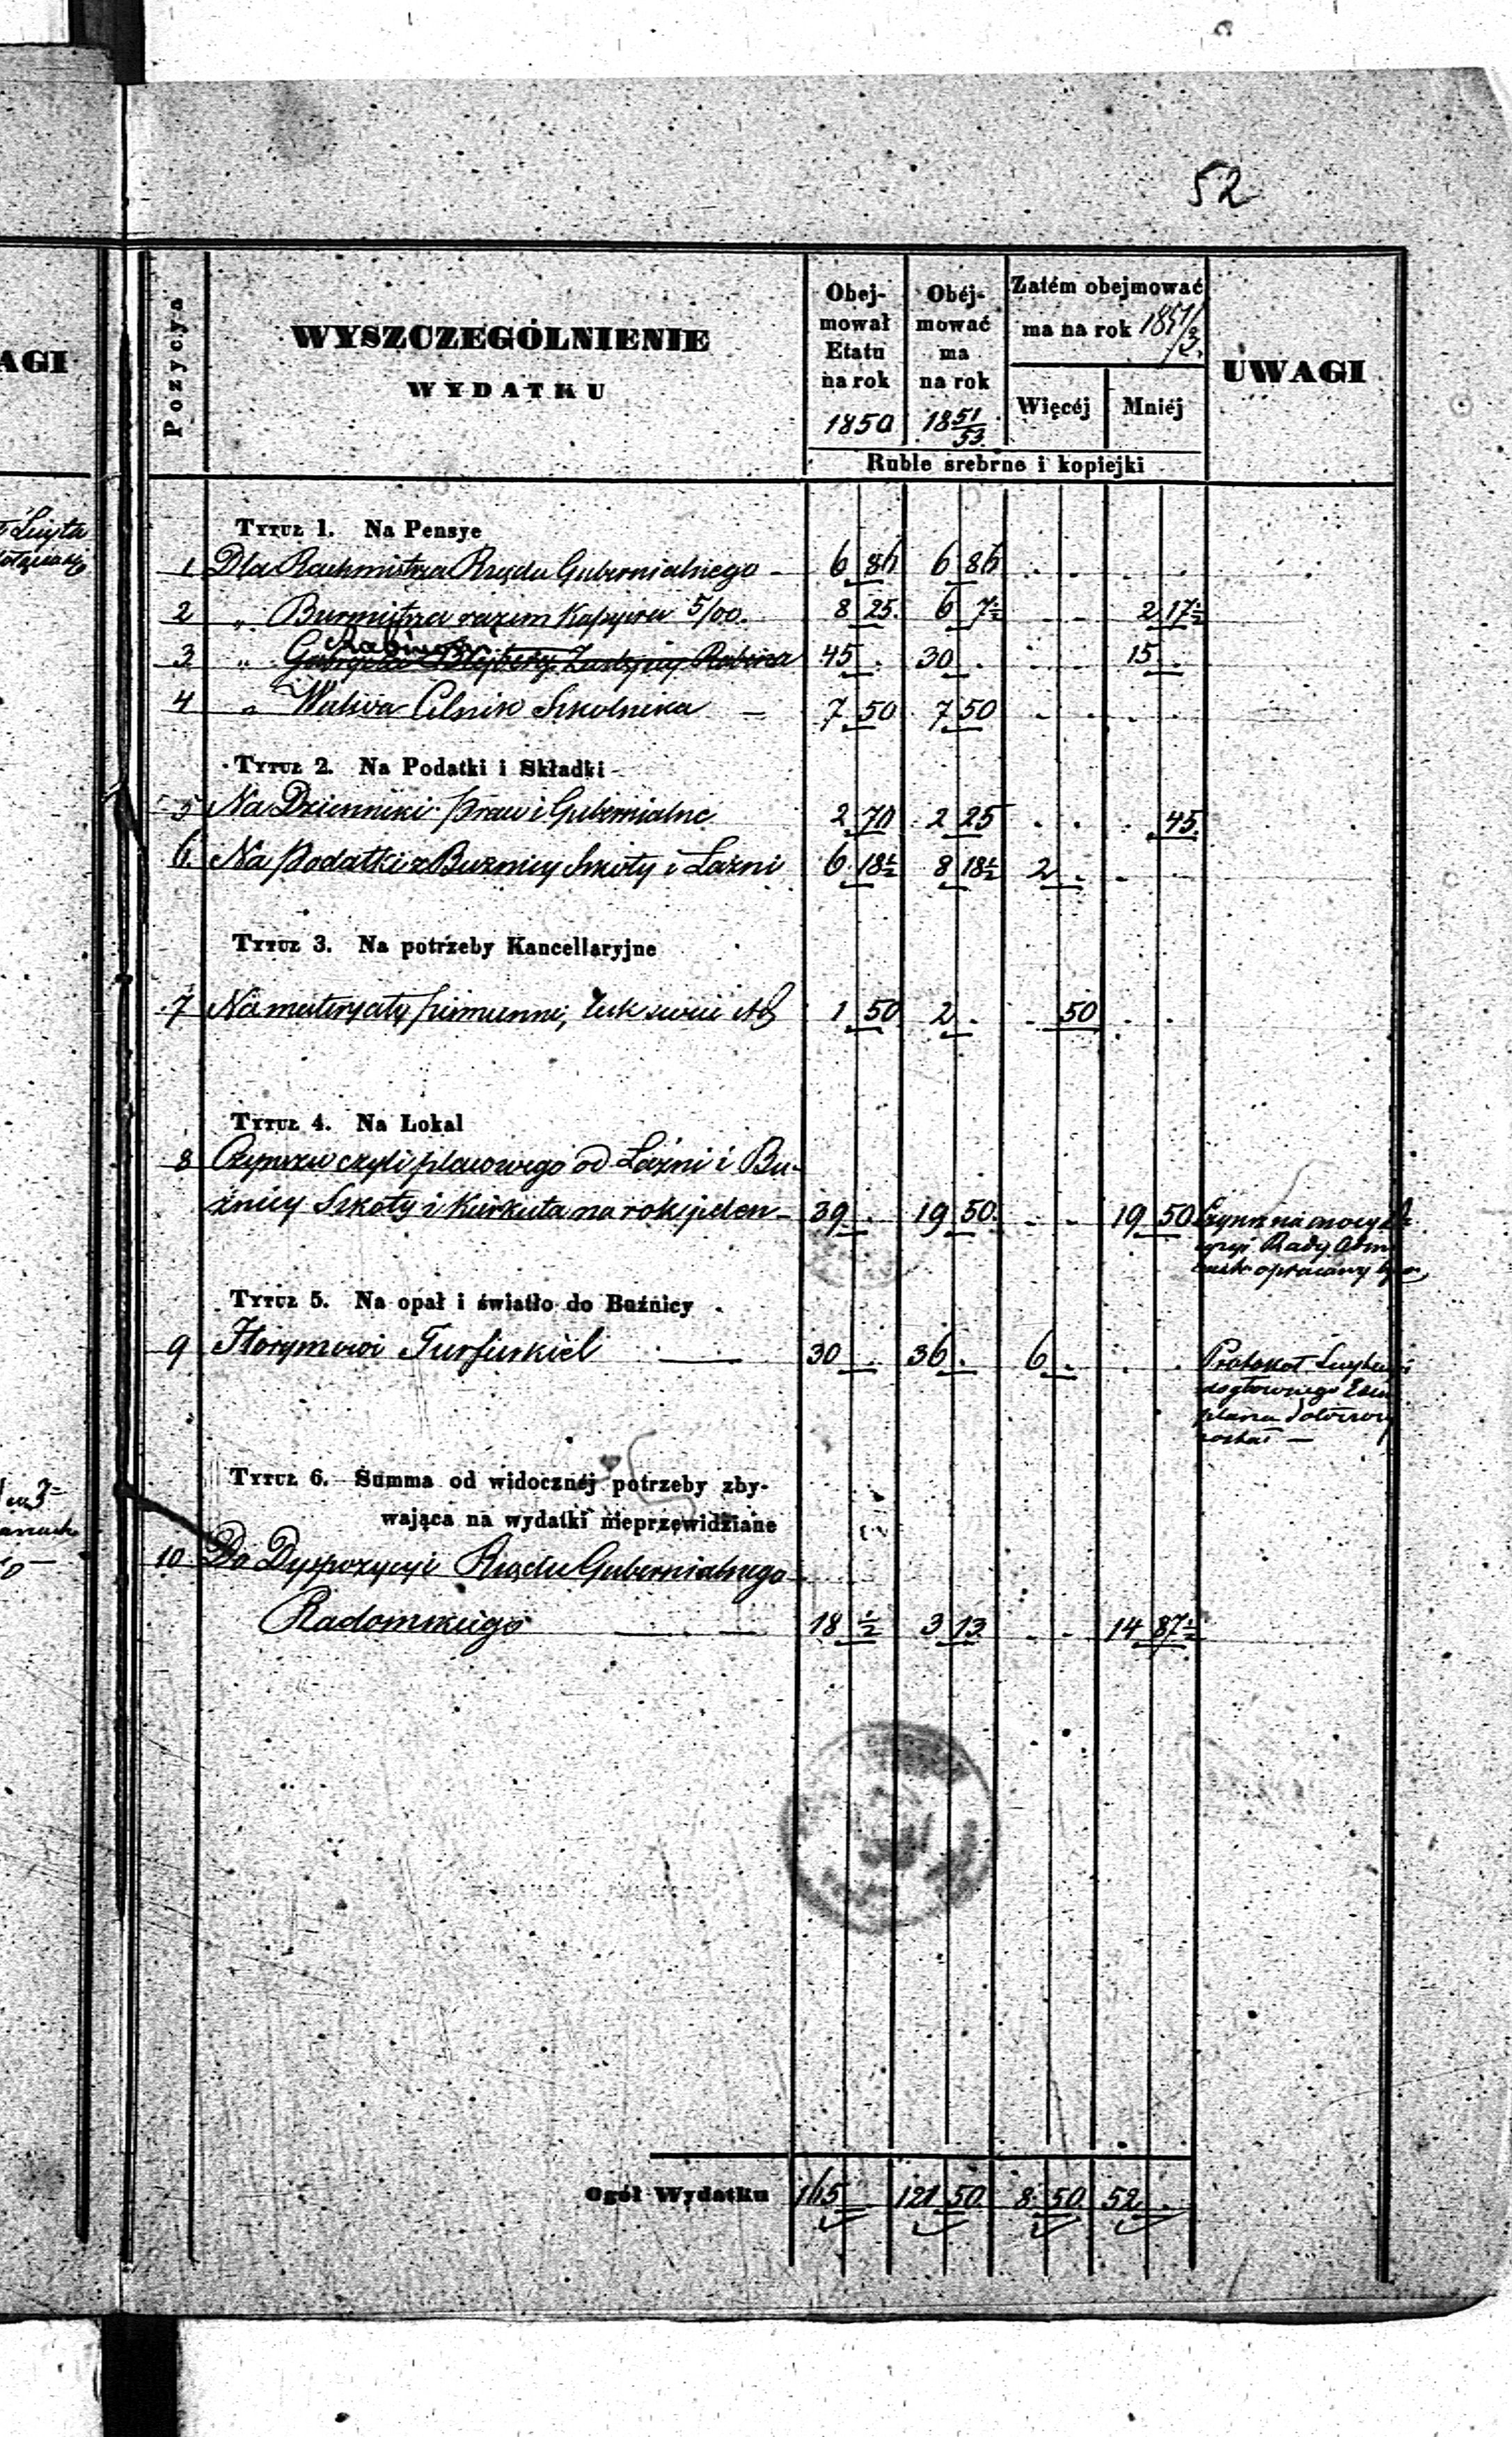 52
AGI
Pozycya
WYSZCZEGÓLNIENIE
WYDATKU
Obej-
mował
Etatu
na rok
1850
Obéj-
mować
ma
na rok
1851/53.
Zatém obejmować
ma na rok 1851/3.
Więcéj Mniéj
Ruble srebrne i kopiejki
UWAGI
Tytuł 1. Na Pensye
1 Dla Rachmistrza Rządu Gubernialnego - 6 86 6 86 . . . .
2 „ Burmistrza razem Kassyera 5/00. 8 25. 6 7½ . . 2 17½
Rabina
3 „ Zastępcy Rabina 45 . 30 . . . 15 .
4 „ Szkolnika — 7 50 7 50 . . . .
Tytuł 2. Na Podatki i Składki
5 Na Dzienniki praw i Gubernialne 2 70 2 25 . . . 45.
6. Na Podatki z Buznicy Szkoły i Łazni 6 18½ 8 18½ 2 . . .
Tytuł 3. Na potrzeby Kancellaryjne
7 Na materyały piśmienne, 1 50 2 . . 50 . .
Tytuł 4. Na Lokal
8 Czynszu czyli placowego od Łaźni i Bu-
źnicy Szkoły i Kirkuta na rok jeden - 39 . 19 50. . . 19 50
Czynsz na mocy
Rady Adm
opłacany
Tytuł 5. Na opał i światło do Buźnicy
9 — 30 . 36 . 6 . . .
Protokół
do głownego
Tytuł 6. Summa od widocznéj potrzeby zby-
wająca na wydatki nieprzewidziane
10 Do Dyspozycyi Rządu Gubernialnego
Radomskiego — — 18 ½ 3 13 . . 14 87½
Ogół Wydatku 165 . 121 50 8 50 52 .